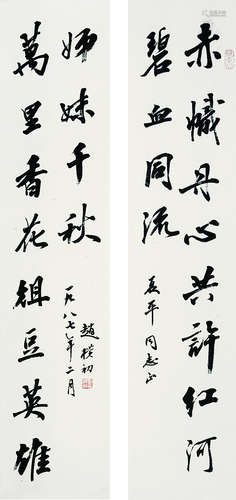 赤幟丹心共許紅河
碧血同流
長平同志正
萬里香花俎豆英雄
姊妹千秋
一九八七年二月
趙樸初